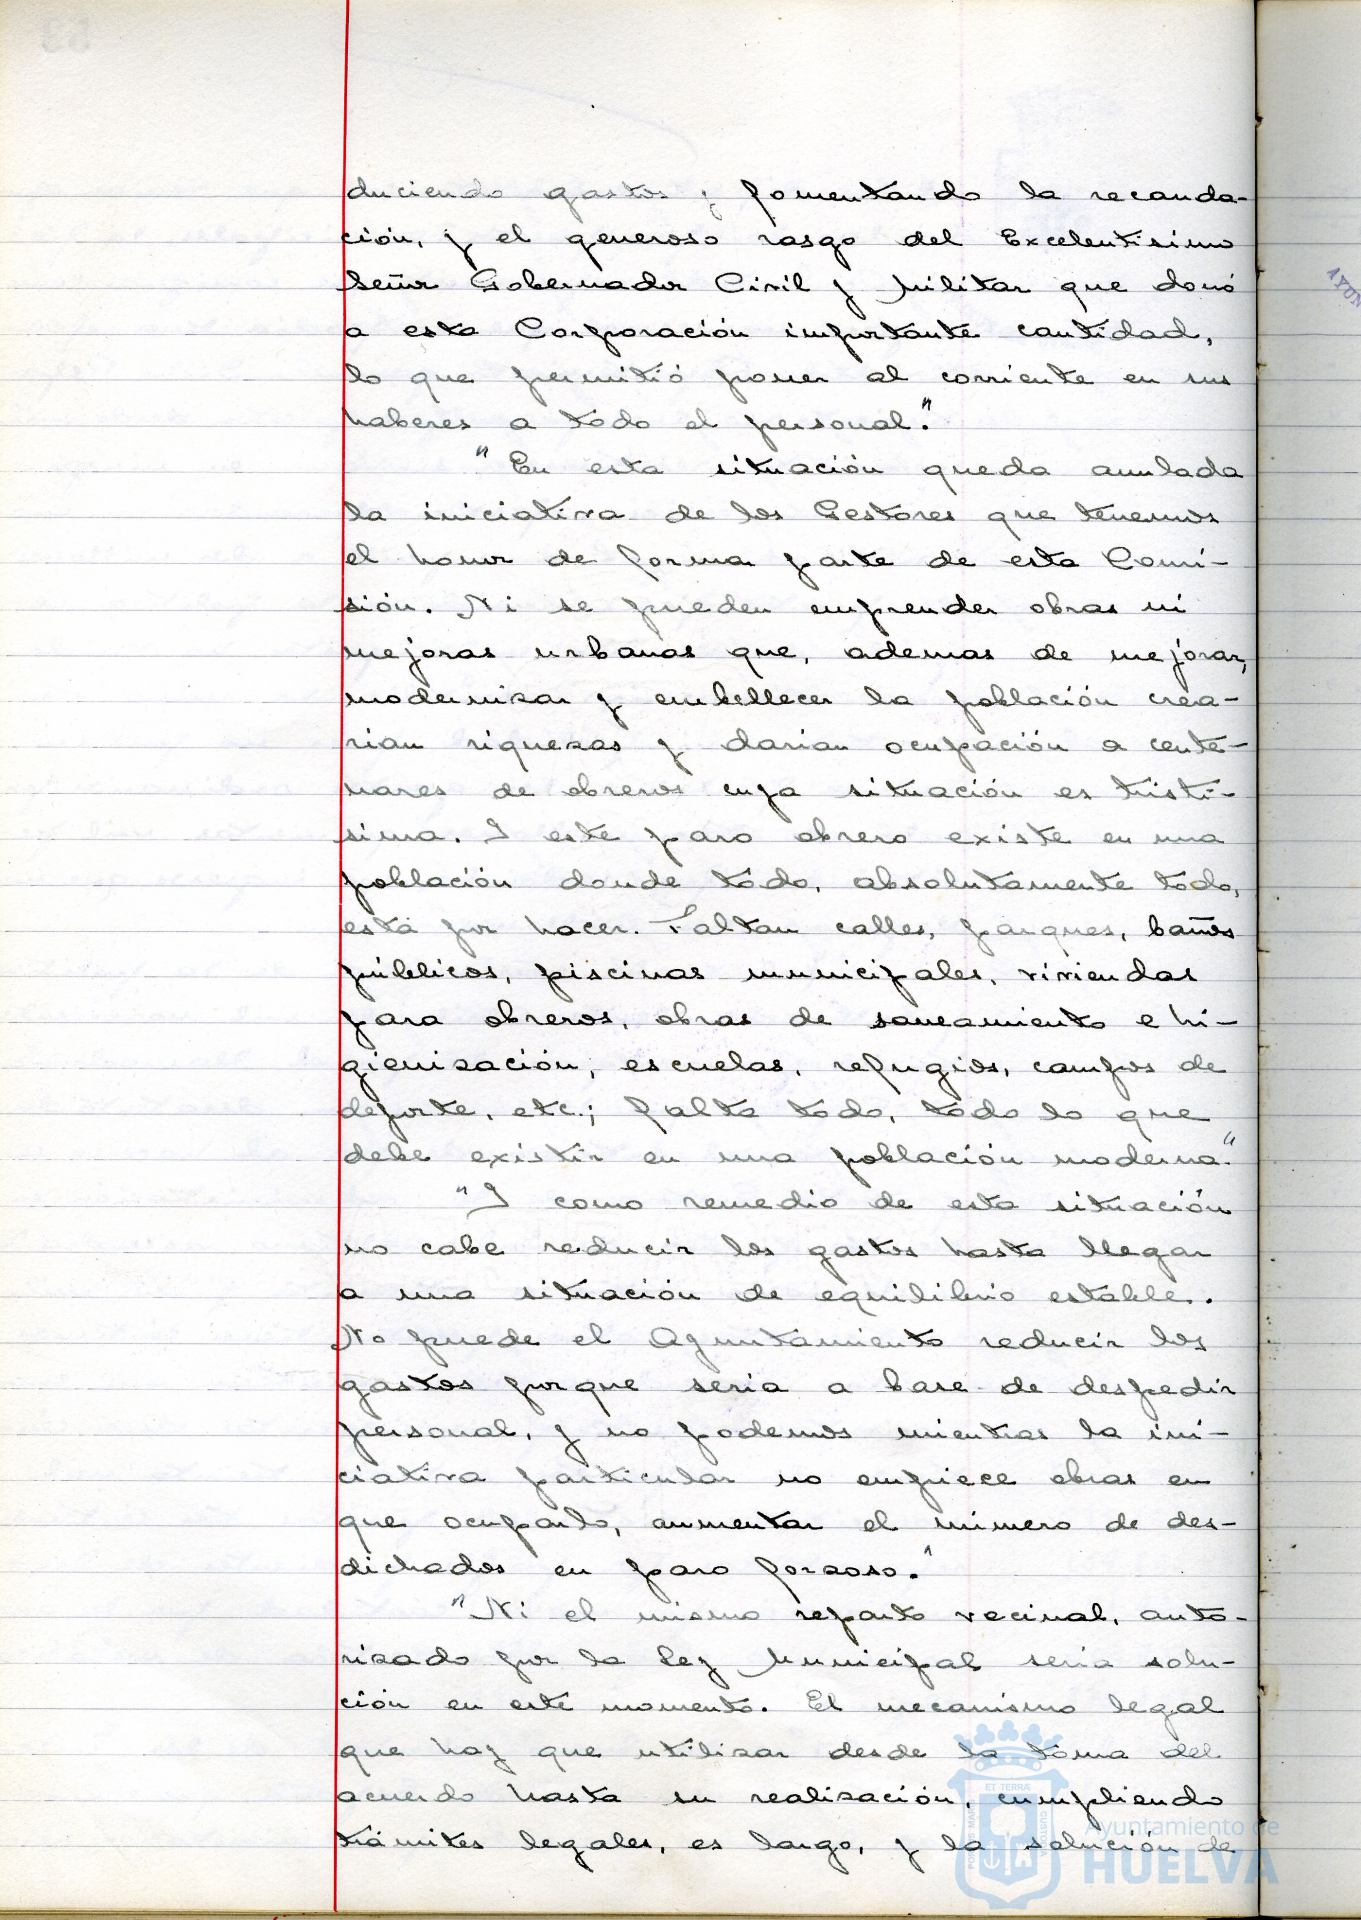 duciendo gastos y fomentando la recauda-
ción, y el generoso rasgo del Excelentísimo
Señor Gobernador Civil y Militar que donó
a esta Corporación importante cantidad,
lo que permitió poner al corriente en sus
haberes a todo el personal."
"En esta situación queda anulada
la iniciativa de los Gestores que tenemos
el honor de formar parte de esta Comi-
sión. Ni se pueden emprender obras ni
mejoras urbanas que, ademas de mejorar,
modernizar y embellecer la población crea-
rian riquezas y darian ocupación a cente-
nares de obreros cuya situación es tristí-
sima. Y este paro obrero existe en una
población donde todo, absolutamente todo,
está por hacer. Faltan calles, parques, baños
públicos, piscinas municipales, viviendas
para obreros, obras de saneamiento e hi-
gienización, escuelas, refugios, campos de
deporte, etc.; falta todo, todo lo que
debe existir en una población moderna."
"Y como remedio de esta situación
no cabe reducir los gastos hasta llegar
a una situación de equilibrio estable.
No puede el Ayuntamiento reducir los
gastos porque seria a base de despedir
personal, y no podemos mientras la ini-
ciativa particular no empiece obras en
que ocuparlo, aumentar el número de des-
dichados en paro forzoso."
"Ni el mismo reparto vecinal, auto-
rizado por la Ley Municipal seria solu-
ción en este momento. El mecanismo legal
que hay que utilizar desde la toma del
acuerdo hasta su realización, cumpliendo
trámites legales, es largo, y la solución de
Ayuntamiento de
HUELVA